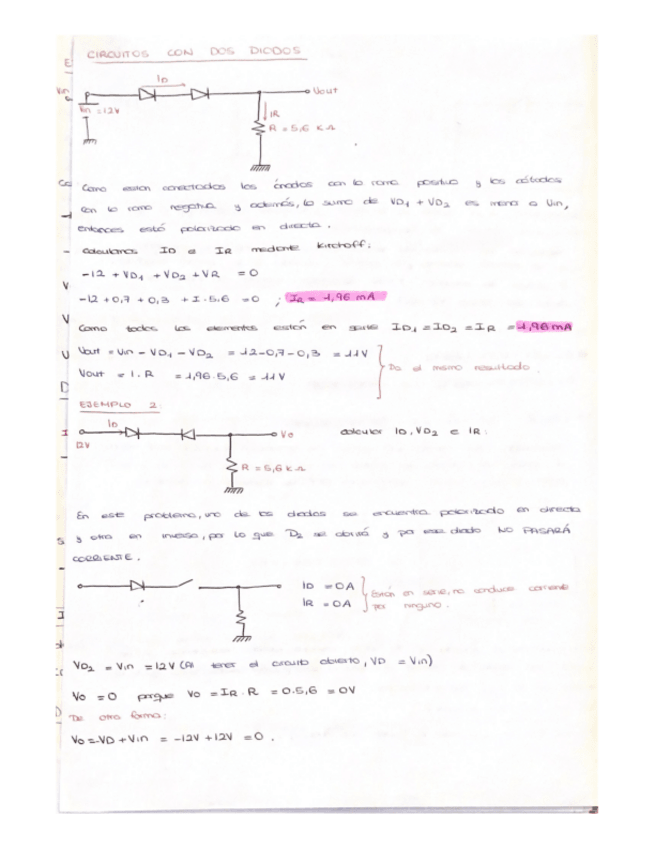 CIRCUITOS CON DOS DIODOS
E
ID
Vin
Vout
Vin = 12V
IR
R = 5,6 KΩ
Como estan conectados los ánodos con la rama positiva y los cátodos
con la rama negativa y además, la suma de VD1 + VD2 es menor a Vin,
entonces está polarizado en directa.
- Calculamos ID e IR mediante Kirchoff:
-12 + VD1 + VD2 + VR = 0
V
-12 + 0,7 + 0,3 + I · 5.6 = 0 ; IR = 1,96 mA
V
Como todos los elementos están en serie ID1 = ID2 = IR = 1,96 mA
U
Vout = Vin - VD1 - VD2 = 12-0,7-0,3 = 11V
Vout = I . R = 1,96 . 5,6 = 11V
Da el mismo resultado.
D
EJEMPLO 2:
I
ID
12V
Vo
calcular ID, VD2 e IR:
R = 5,6 KΩ
En este problema, uno de los diodos se encuentra polarizado en directa
y otro en inversa, por lo que D2 se abrirá y por ese diodo NO PASARÁ
CORRIENTE.
ID = 0A
IR = 0A
Están en serie, no conduce corriente
por ninguno.
VD2 = Vin = 12V (Al tener el circuito abierto, VD = Vin)
Vo = 0 porque Vo = IR · R = 0.5,6 = 0V
D
De otra forma:
Vo = -VD + Vin = -12V + 12V = 0.